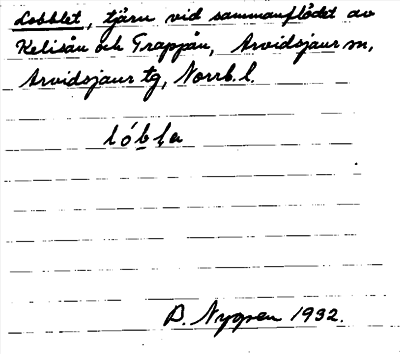 Lobblet, tjärn vid sammanflödet av
Kelisån och Trappån, Arvidsjaur sn,
Arvidsjaur tg, Norrb. l.
lóbla
B. Nygren 1932.